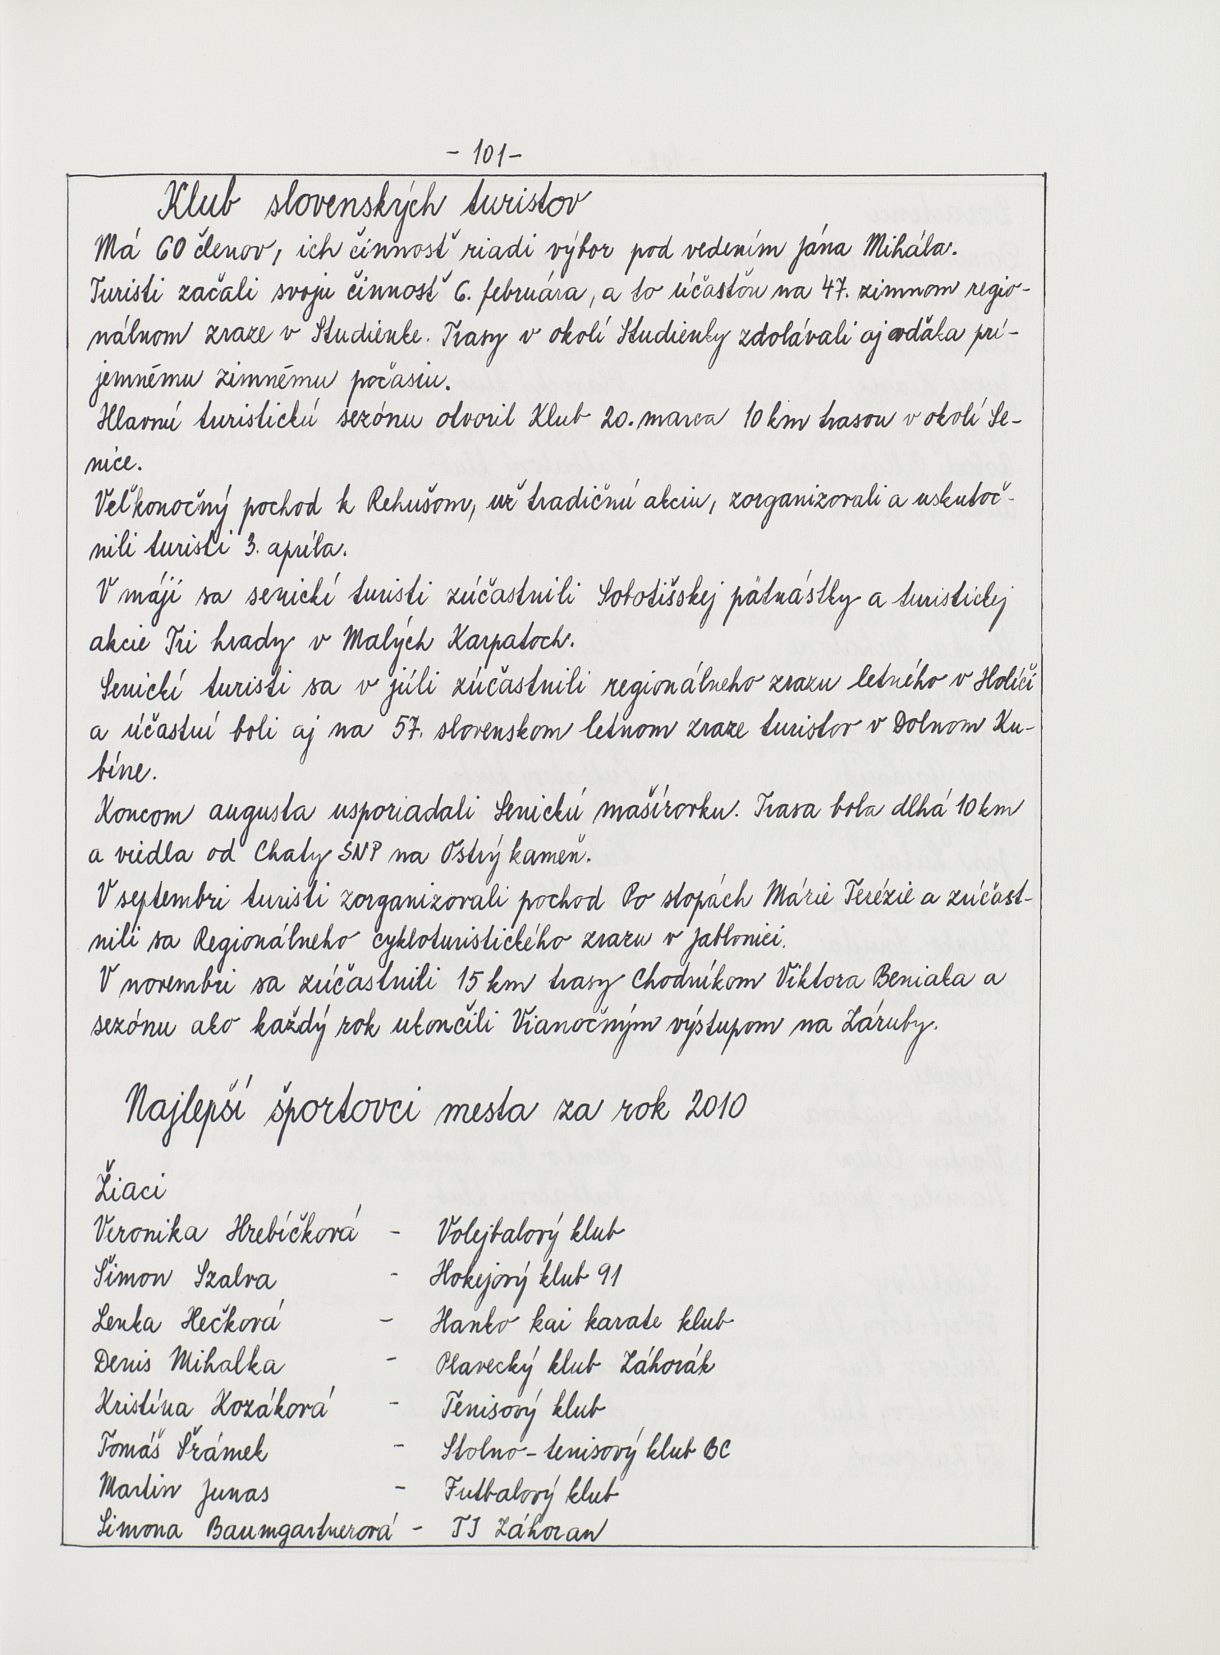 - 101 -
Klub slovenských turistov
Má 60 členov, ich činnosť riadi výbor pod vedením Jána Mihála.
Turisti začali svoju činnosť 6. februára, a to účasťou na 47. zimnom regio-
nálnom zraze v Studienke. Trasy v okolí Studienky zdolávali aj vďaka prí-
jemnému zimnému počasiu.
Hlavnú turistickú sezónu otvoril Klub 20. marca 10 km trasou v okolí Se-
nice.
Veľkonočný pochod k Rehušom, už tradičnú akciu, zorganizovali a uskutoč-
nili turisti 3. apríla.
V máji sa senickí turisti zúčastnili Sobotišskej pätnástky a turistickej
akcie Tri hrady v Malých Karpatoch.
Senickí turisti sa v júli zúčastnili regionálneho zrazu letného v Holíči
a účastní boli aj na 57. slovenskom letnom zraze turistov v Dolnom Ku-
bíne.
Koncom augusta usporiadali Senickú mašírovku. Trasa bola dlhá 10 km
a viedla od Chaty SNP na Ostrý kameň.
V septembri turisti zorganizovali pochod Po stopách Márie Terézie a zúčast-
nili sa Regionálneho cykloturistického zrazu v Jablonici.
V novembri sa zúčastnili 15 km trasy Chodníkom Viktora Beniaka a
sezónu ako každý rok ukončili Vianočným výstupom na Záruby.
Najlepší športovci mesta za rok 2010
Žiaci
Veronika Hrebíčková - Volejbalový klub
Šimon Szalva - Hokejový klub 91
Lenka Hečková - Hanko kai karate klub
Denis Mihalka - Plavecký klub Záhorák
Kristína Kozáková - Tenisový klub
Tomáš Šrámek - Stolno-tenisový klub BC
Martin Junas - Futbalový klub
Simona Baumgartnerová - TJ Záhoran